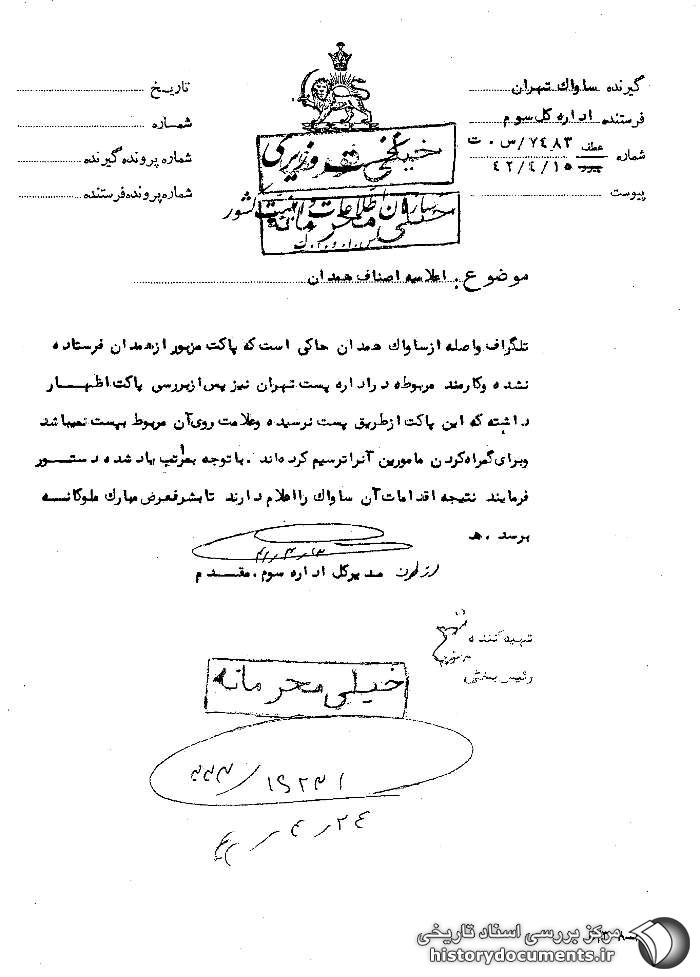 گیرنده ساواك تهران
فرستنده اداره كل سوم
شماره عطف ۷۴۸۳/س . ت
۴۲/۴/۱۵
پیوست
تاریخ
شماره
شماره پرونده گیرنده
شماره پرونده فرستنده
نخست وزیری
خیلی محرمانه
سازمان اطلاعات و امنیت کشور
خیلی محرمانه
س.ا.و.ا.ك
موضوع : اعلامیه اصناف همدان
تلگراف واصله از ساواك همدان حاکی است که پاکت مزبور از همدان فرستاده
نشده و کارمند مربوطه در اداره پست تهران نیز پس از بررسی پاکت اظهار
داشته که این پاکت از طریق پست نرسیده و علامت روی آن مربوط به پست نمیباشد
و برای گمراه کردن مامورین آنرا ترسیم کرده اند . با توجه بمراتب یاد شده دستور
فرمایند نتیجه اقدامات آن ساواك را اعلام دارند تا بشرفعرض مبارك ملوکانه
برسد . ه
از طرف مدیر کل اداره سوم . مقدم
تهیه کننده
رئیس بخش
خیلی محرمانه
۱۹۲۳۱
۲۴ / ۴ / ۴۲
مرکز بررسی اسناد تاریخی
historydocuments.ir